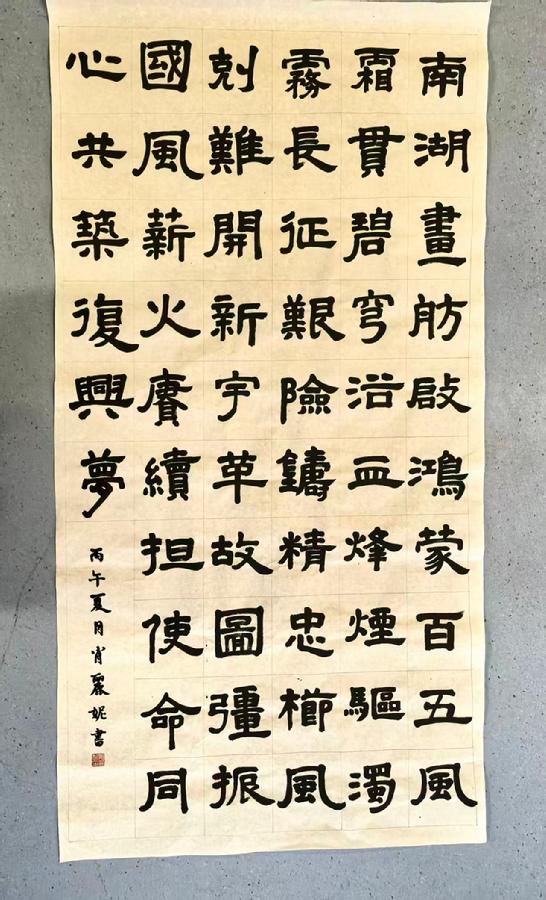 南湖畫舫啟鴻蒙百五風
霜貫碧穹沿血烽煙驅濁
霧長征艱險鑄精忠櫛風
剋難開新宇革故圖彊振
國風薪火賡續担使命同
心共築復興夢
丙午夏月肖麗妮書